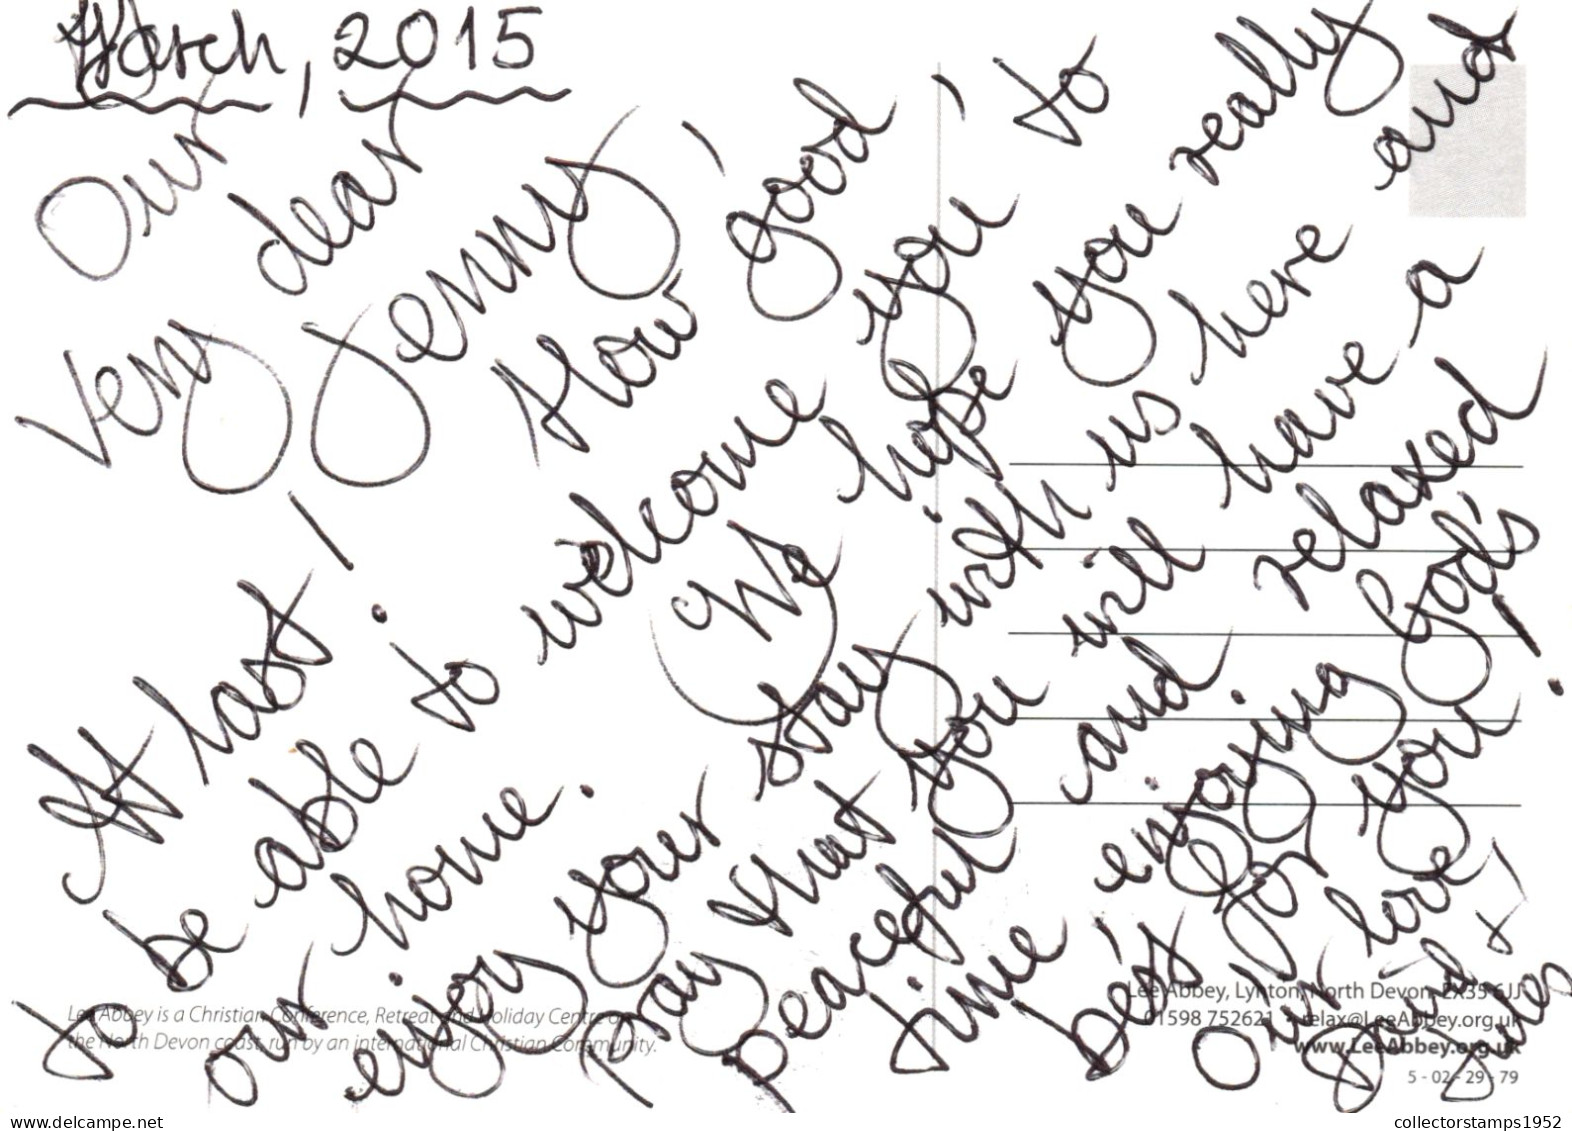 March, 2015
Our
very dear
Jenny,
At last! How good,
to be able to welcome you to
our home. We hope you really
enjoy your stay with us here and
pray that you will have a
peaceful and relaxed
time, enjoying God's
best for you!
Our love
+
Lee Abbey is a Christian Conference, Retreat and Holiday Centre on
the North Devon coast, run by an international Christian Community.
Lee Abbey, Lynton, North Devon, EX35 6JJ
01598 752621 relax@LeeAbbey.org.uk
www.LeeAbbey.org.uk
5 - 02 - 29 - 79
www.delcampe.net
collectorstamps1952